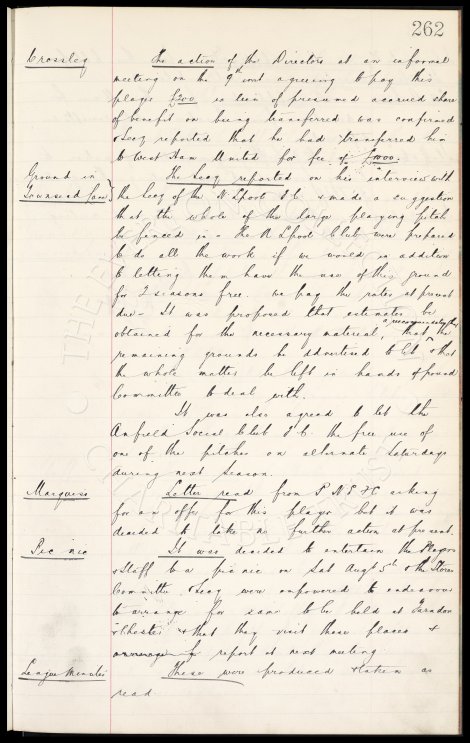 262
Crossley The action of the Directors at an informal
meeting on the 9th inst agreeing to pay this
player £300 in lieu of presumed accrued share
of benefit on being transferred was confirmed
& Secy reported that he had transferred him
to West Ham United for fee of
Ground in The Secy reported on his interview with
Townsend Lane the Secy of the N Lpool F C & made a suggestion
that the whole of the large playing pitch
be fenced in - the N Lpool Club were prepared
to do all the work if we would in addition
to letting them have the use of this ground
for 2 seasons free. we pay the rates at present
due - It was proposed that estimates be
obtained for the necessary material, that the
remaining grounds be advertised to let & that
the whole matter be left in hands of ground
Committee to deal with.
It was also agreed to let the
Anfield Social Club F C. the free use of
one of the pitches on alternate Saturdays
during next season.
Marquiss Letter read from P N E F C asking
for an offer for this player but it was
decided to take no further action at present.
Pic nic It was decided to entertain the Players
& Staff to a pic nic on Sat Augt 5th & the Stores
Committee & Secy were empowered to endeavour
to arrange for same to be held at Farndon
& Chester & that they visit these places &
report at next meeting
League Minutes These were produced & taken as
read.